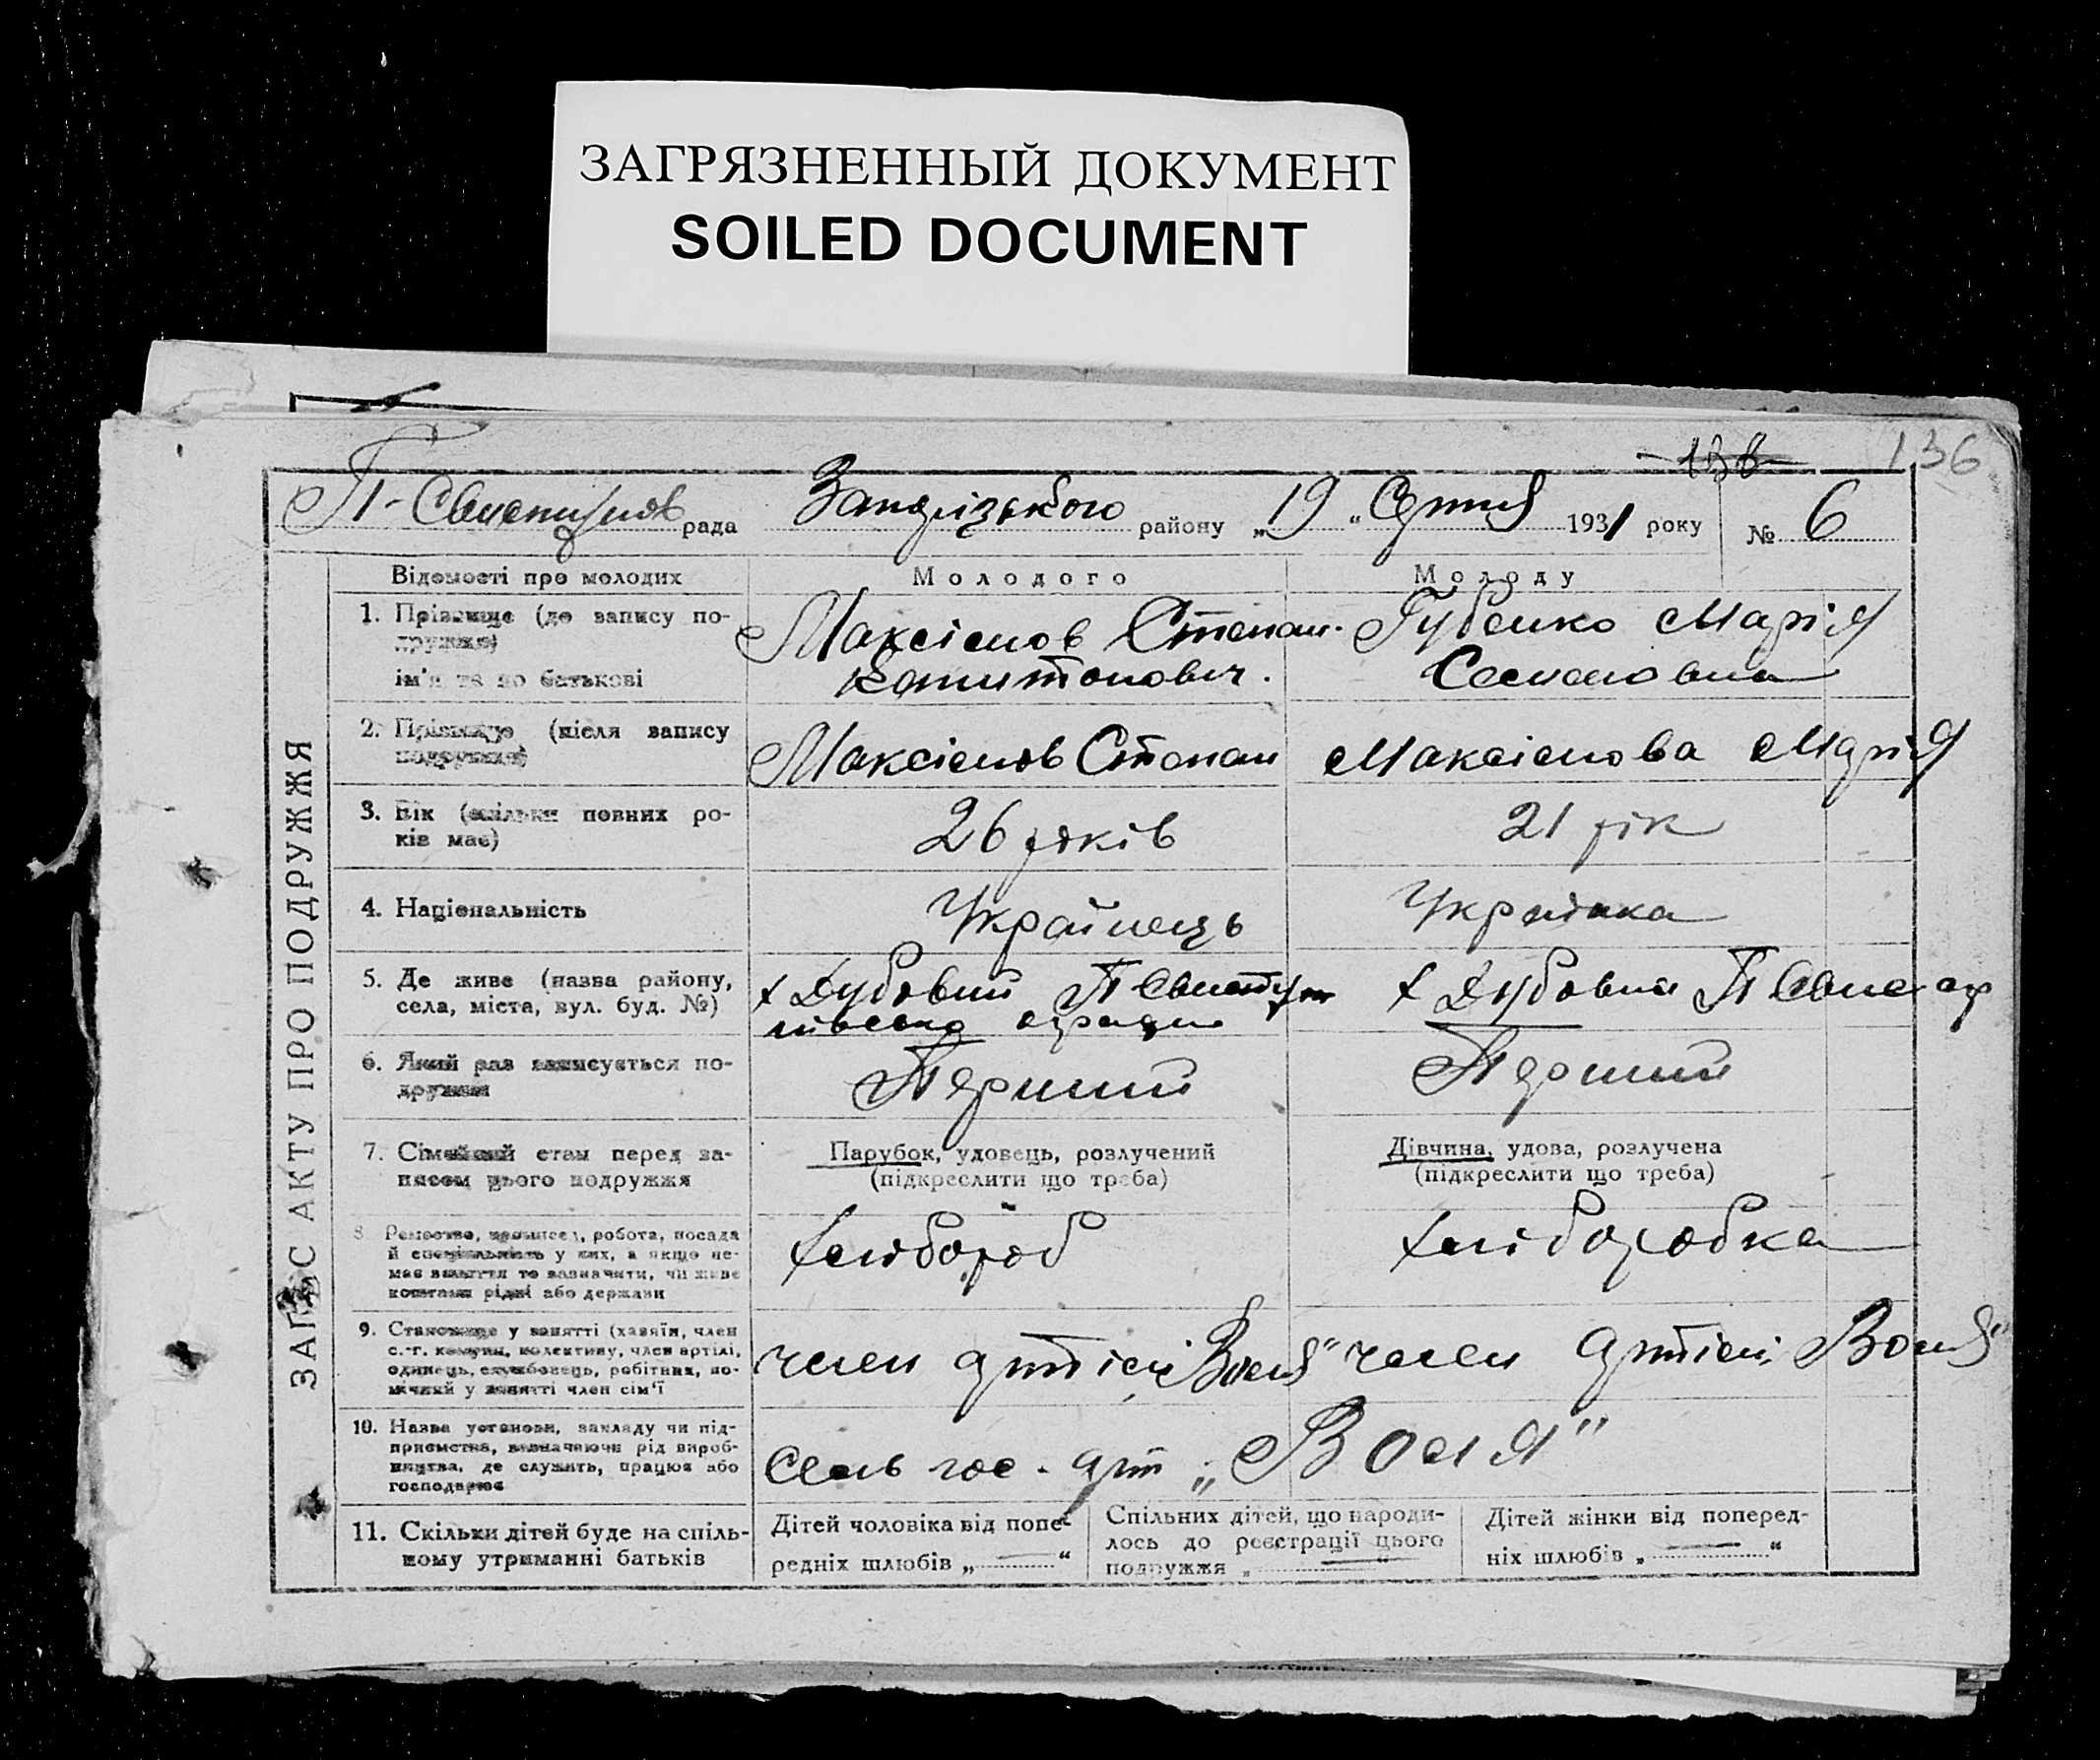 ЗАГРЯЗНЕННЫЙ ДОКУМЕНТ
SOILED DOCUMENT
136
рада району „19“ Серпня 1931 року № 6
ЗАПИС АКТУ ПРО ПОДРУЖЖЯ
Відомості про молодих
Молодого
Молоду
1. Прізвище (до запису по-
дружжя)
ім'я та по батькові
Максімов Степан
Капитонович.
Губенко Марія
Семеновна
2. Прізвище (після запису
подружжя)
Максімов Степан
Максімова Марія
3. Вік (скільки повних ро-
ків має)
26 років
21 рік
4. Національність
Українець
Українка
5. Де живе (назва району,
села, міста, вул. буд. №)
х Дубовий П
х Дубовий П
6. Який раз записується по-
дружжя
Перший
Перший
7. Сімейний стан перед за-
писом цього подружжя
Парубок, удовець, розлучений
(підкреслити що треба)
Дівчина, удова, розлучена
(підкреслити що треба)
8. Ремество, промисел, робота, посада
й спеціяльність у них, а якщо не-
має заняття то зазначити, чи живе
коштами рідні або держави
Хлібороб
Хліборобка
9. Становище у занятті (хазяїн, член
с.-г. комуни, колективу, член артілі,
одинець, службовець, робітник, по-
мічний у занятті член сім'ї
член артілі Воля"
член артілі Воля"
10. Назва установи, закладу чи під-
приємства, визначаючи рід вироб-
ництва, де служить, працює або
господарює
Сель гос. арт „Воля"
11. Скільки дітей буде на спіль-
ному утриманні батьків
Дітей чоловіка від попе-
редніх шлюбів „ — “
Спільних дітей, що народи-
лось до реєстрації цього
подружжя „ — “
Дітей жінки від поперед-
ніх шлюбів „ — “